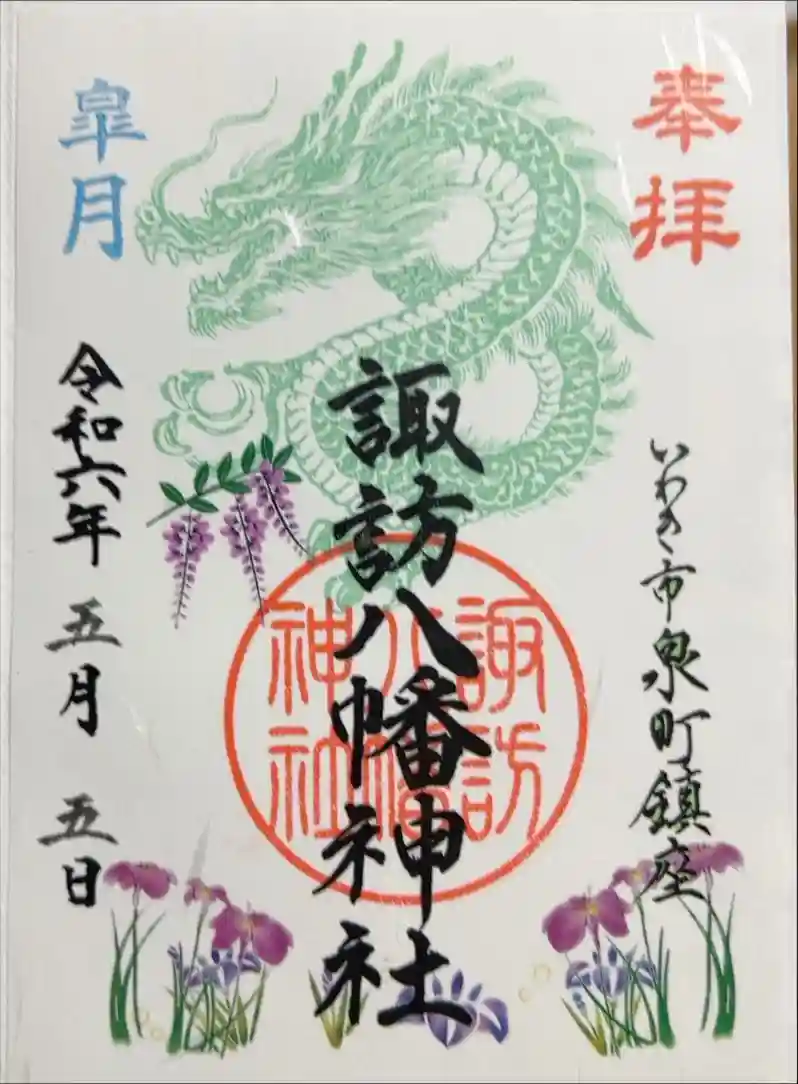 奉拝
いわき市泉町鎮座
諏訪八幡神社
諏訪
八幡
神社
皐月
令和六年 五月 五日